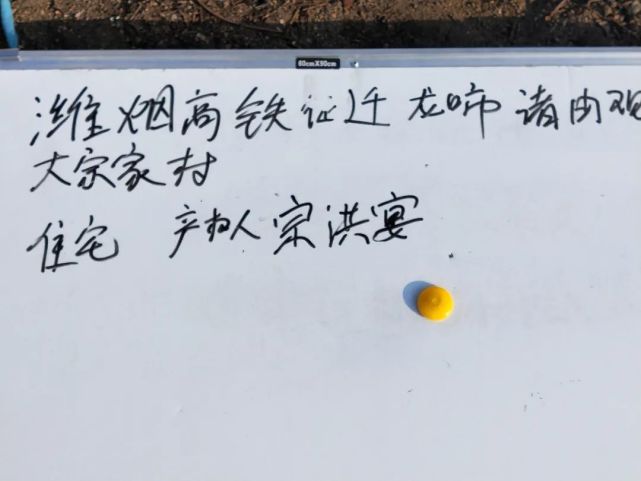 60cmX90cm
潍烟高铁征迁 龙口市 诸由观
大宗家村
住宅 产权人 宗洪宴